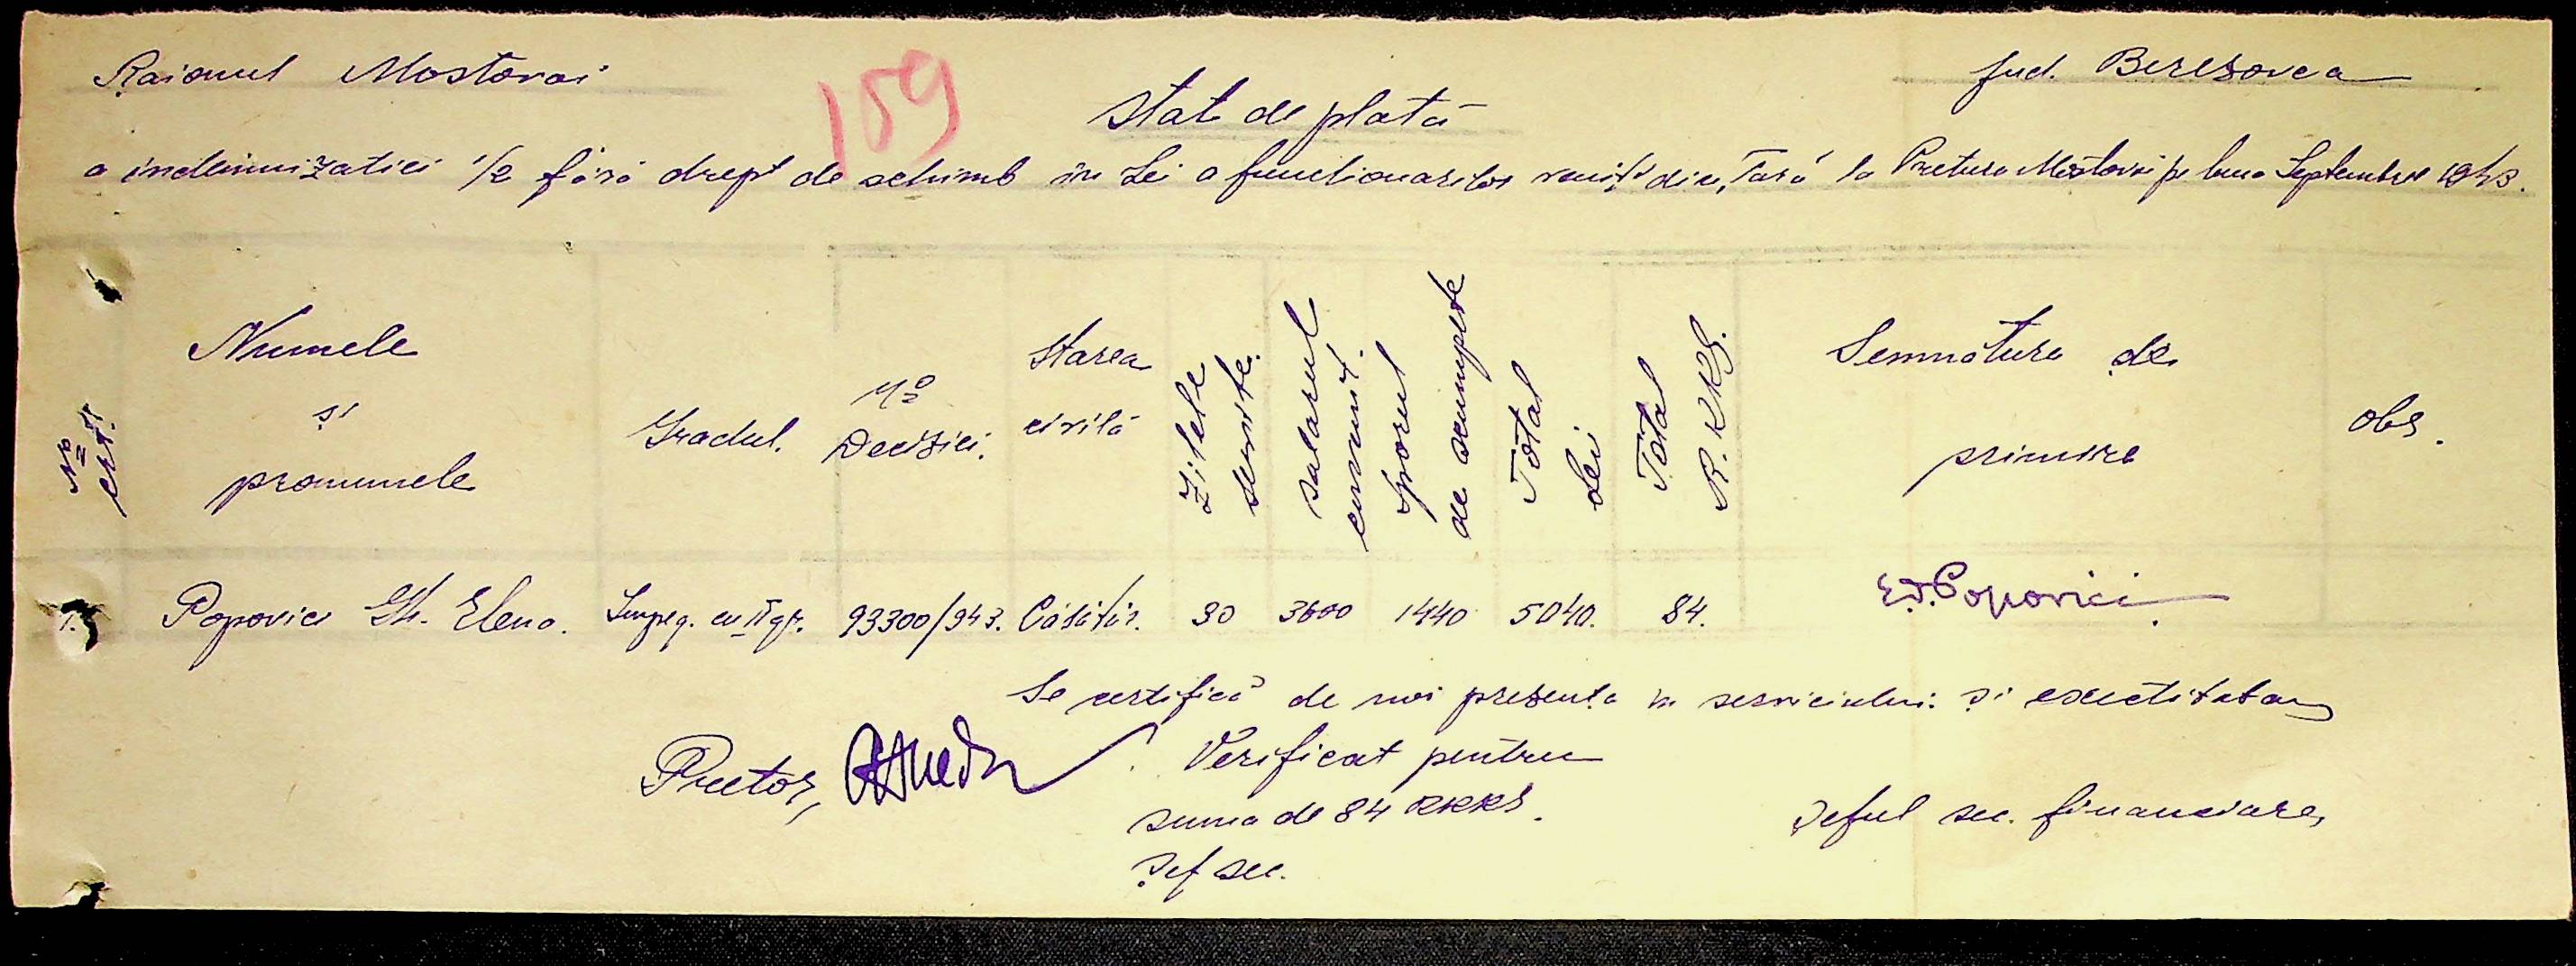 Raionul Mostovoi
159
Jud. Beresovca
Stat de plată
a indemnizatiei 1/2 fără drept de schimb în Lei a functionarilor veniți din Țară la Pretura Mostovoi pe luna Septembrie 1943.
No crt.
Numele
și
pronumele
Gradul.
No
Deciziei.
Starea
civilă
Zilele
servite.
Salarul
cuvenit.
Sporul
de scumpete
Total
Lei
Total
R.KKS.
Semnătura de
primire
Obs.
1. Popovici Gh. Elena. Impeg. cu II gr. 93300/943. Căsător. 30 3600 1440 5040. 84. E. Popovici
Se certifică de noi presența la serviciului și exactitatea
Pretor,
Verificat pentru
suma de 84 RKKS.
Șef sec.
Șeful sec. financiare,